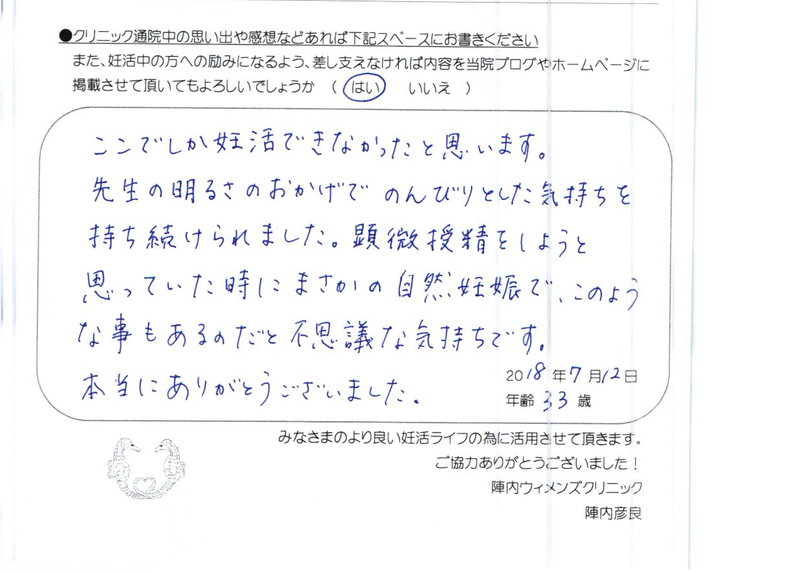 ●クリニック通院中の思い出や感想などあれば下記スペースにお書きください
また、妊活中の方への励みになるよう、差し支えなければ内容を当院ブログやホームページに
掲載させて頂いてもよろしいでしょうか （ はい いいえ ）
ここでしか妊活できなかったと思います。
先生の明るさのおかげで のんびりとした気持ちを
持ち続けられました。顕微授精をしようと
思っていた時にまさかの自然妊娠で、このよう
な事もあるのだと不思議な気持ちです。
本当にありがとうございました。
2018年7月12日
年齢 33 歳
みなさまのより良い妊活ライフの為に活用させて頂きます。
ご協力ありがとうございました！
陣内ウィメンズクリニック
陣内彦良